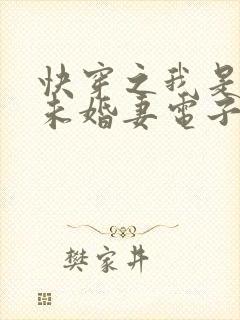 快穿之我是
未婚妻電子
樊家井